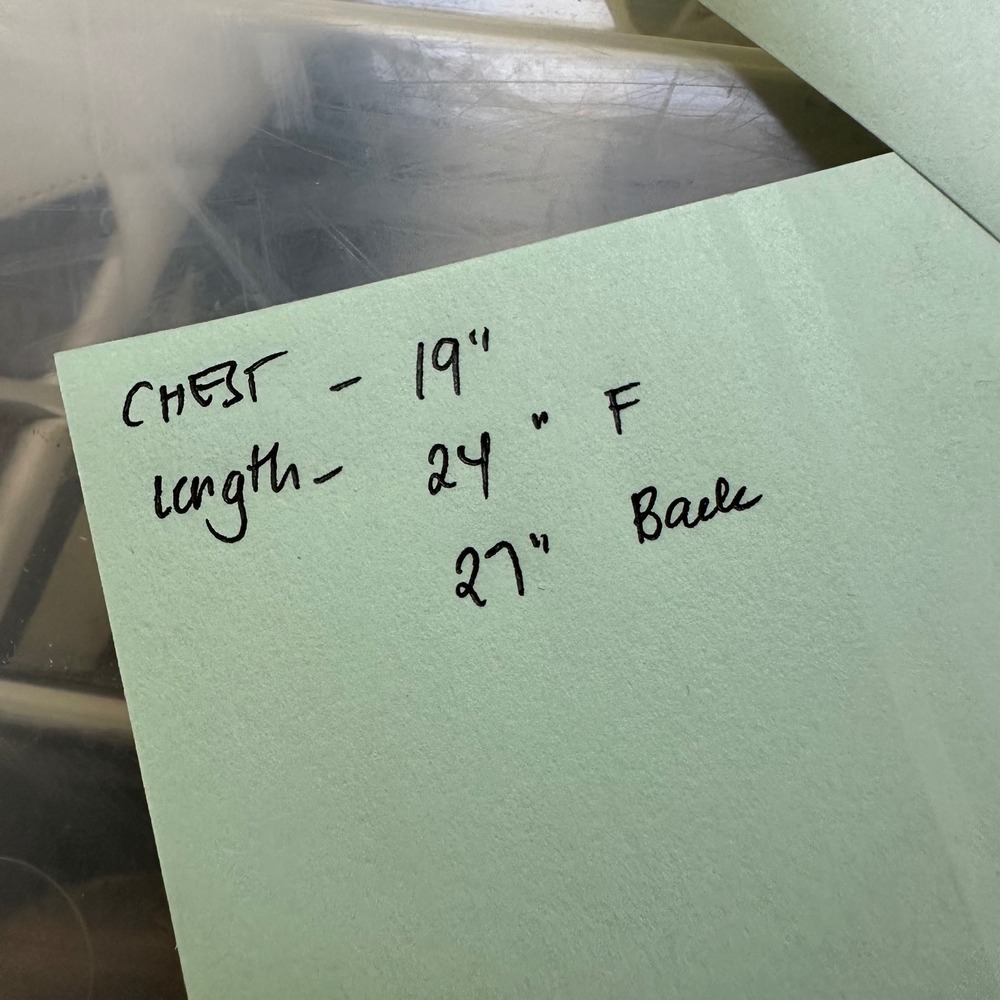 CHEST - 19"
length - 24" F
27" Back